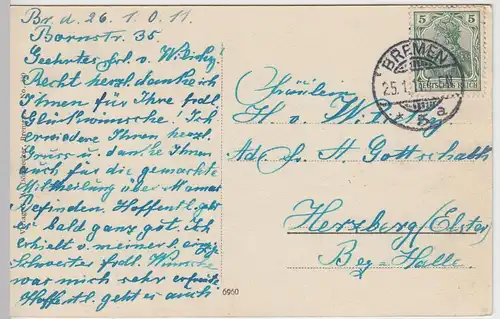 Br. d. 26. 1. 0. 11.
Bornstr. 35.
Geehrtes Frl. v. Wilucky
Recht herzl. danke ich
Ihnen für Ihre frdl.
Glückwünsche! Ich
erwiedere Ihren herzl.
Gruss u. danke Ihnen
auch für die gemachte
Mittheilung über Mamas
Befinden. Hoffentl. geht
es bald ganz gut. Ich
erhielt v. meiner l. einzg.
Schwester frdl. Wunsch
was mich sehr erfreute
Hoffentl. geht es auch
5 5
DEUTSCHES REICH
BREMEN
5 a
Fräulein
H. v.
Adr. Fr. H. Gottschalk
Herzberg (Elster)
Bez. Halle.
6960